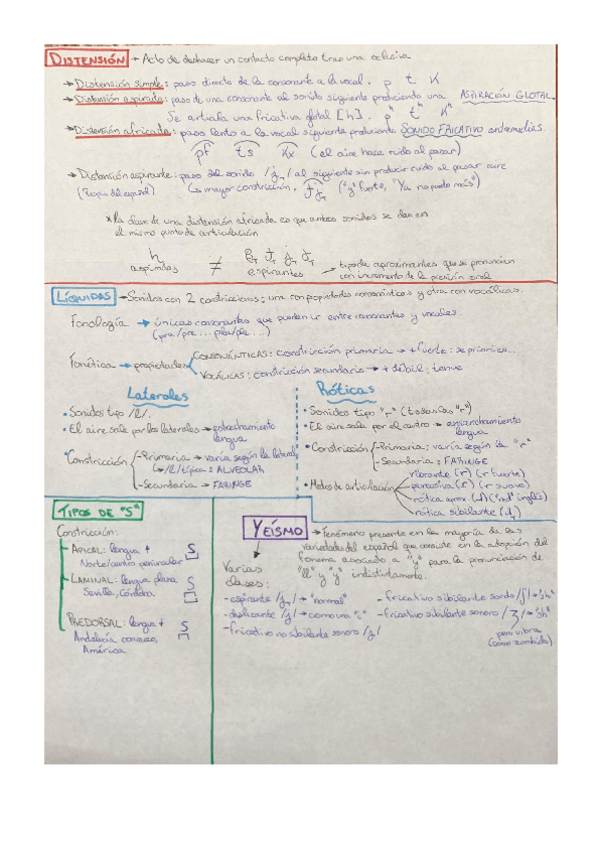 DISTENSIÓN → Acto de deshacer un contacto completo tras una oclusiva
→ Distensión simple: paso directo de la consonante a la vocal. p t k
→ Distensión aspirada: paso de una consonante al sonido siguiente produciendo una ASPIRACIÓN GLOTAL.
Se articula una fricativa glotal [h]. pʰ tʰ kʰ
→ Distensión africada: paso lento a la vocal siguiente produciendo SONIDO FRICATIVO entremedias.
pf ts kx (el aire hace ruido al pasar)
→ Distensión espirante: paso del sonido al siguiente sin producir ruido al pasar aire
(Propio del español) ↳ mayor constricción, ("y" fuerte, "Ya no puedo más")
de una distensión africada es que ambos sonidos se dan en
el mismo punto de articulación
h ≠
aspiradas espirantes → tipo de aproximantes que se pronuncian
con incremento de la presión oral
LÍQUIDAS → Sonidos con 2 constricciones: una con propiedades consonánticas y otra con vocálicas.
Fonología → únicas consonantes que pueden ir entre consonantes y vocales.
(pra/pre... pla/ple...)
Fonética → propiedades
CONSONÁNTICAS: constricción primaria → + fuerte: se prioriza...
VOCÁLICAS: constricción secundaria → + débil: tenue
Laterales
• Sonidos tipo /l/.
• El aire sale por los laterales → estrechamiento
lengua
• Constricción
- Primaria → varía según la lateral
↳ /l/ típica: ALVEOLAR
- Secundaria → FARINGE
Róticas
• Sonidos tipo "r" (todas las "r")
• El aire sale por el centro → ensanchamiento
lengua
• Constricción
- Primaria: varía según la "r"
- Secundaria: FARINGE
• Modos de articulación
vibrante (r) (r fuerte)
percusiva (ɾ) (r suave)
rótica aprox. (ɹ) ("red" inglés)
rótica sibilante
TIPOS DE "S"
Constricción:
- APICAL: lengua + S
Norte/centro peninsular
- LAMINAL: lengua plana S
Sevilla, Córdoba
- PREDORSAL: lengua + S
Andalucía
América
YEÍSMO → Fenómeno presente en la mayoría de las
variedades del español que consiste en la adopción del
fonema asociado a "y" para la pronunciación de
"ll" y "y" indistintamente.
Varias
clases:
- espirante → "normal"
- deslizante /j/ → como una "i"
- fricativo no sibilante sonoro /ʝ/
- fricativo sibilante sordo /ʃ/ → "sh"
- fricativo sibilante sonoro /ʒ/ → "sh"
pero vibra
(como zumbido)